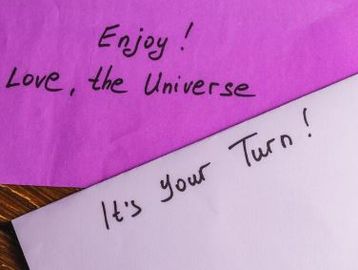 Enjoy!
Love, the Universe
It's your Turn!